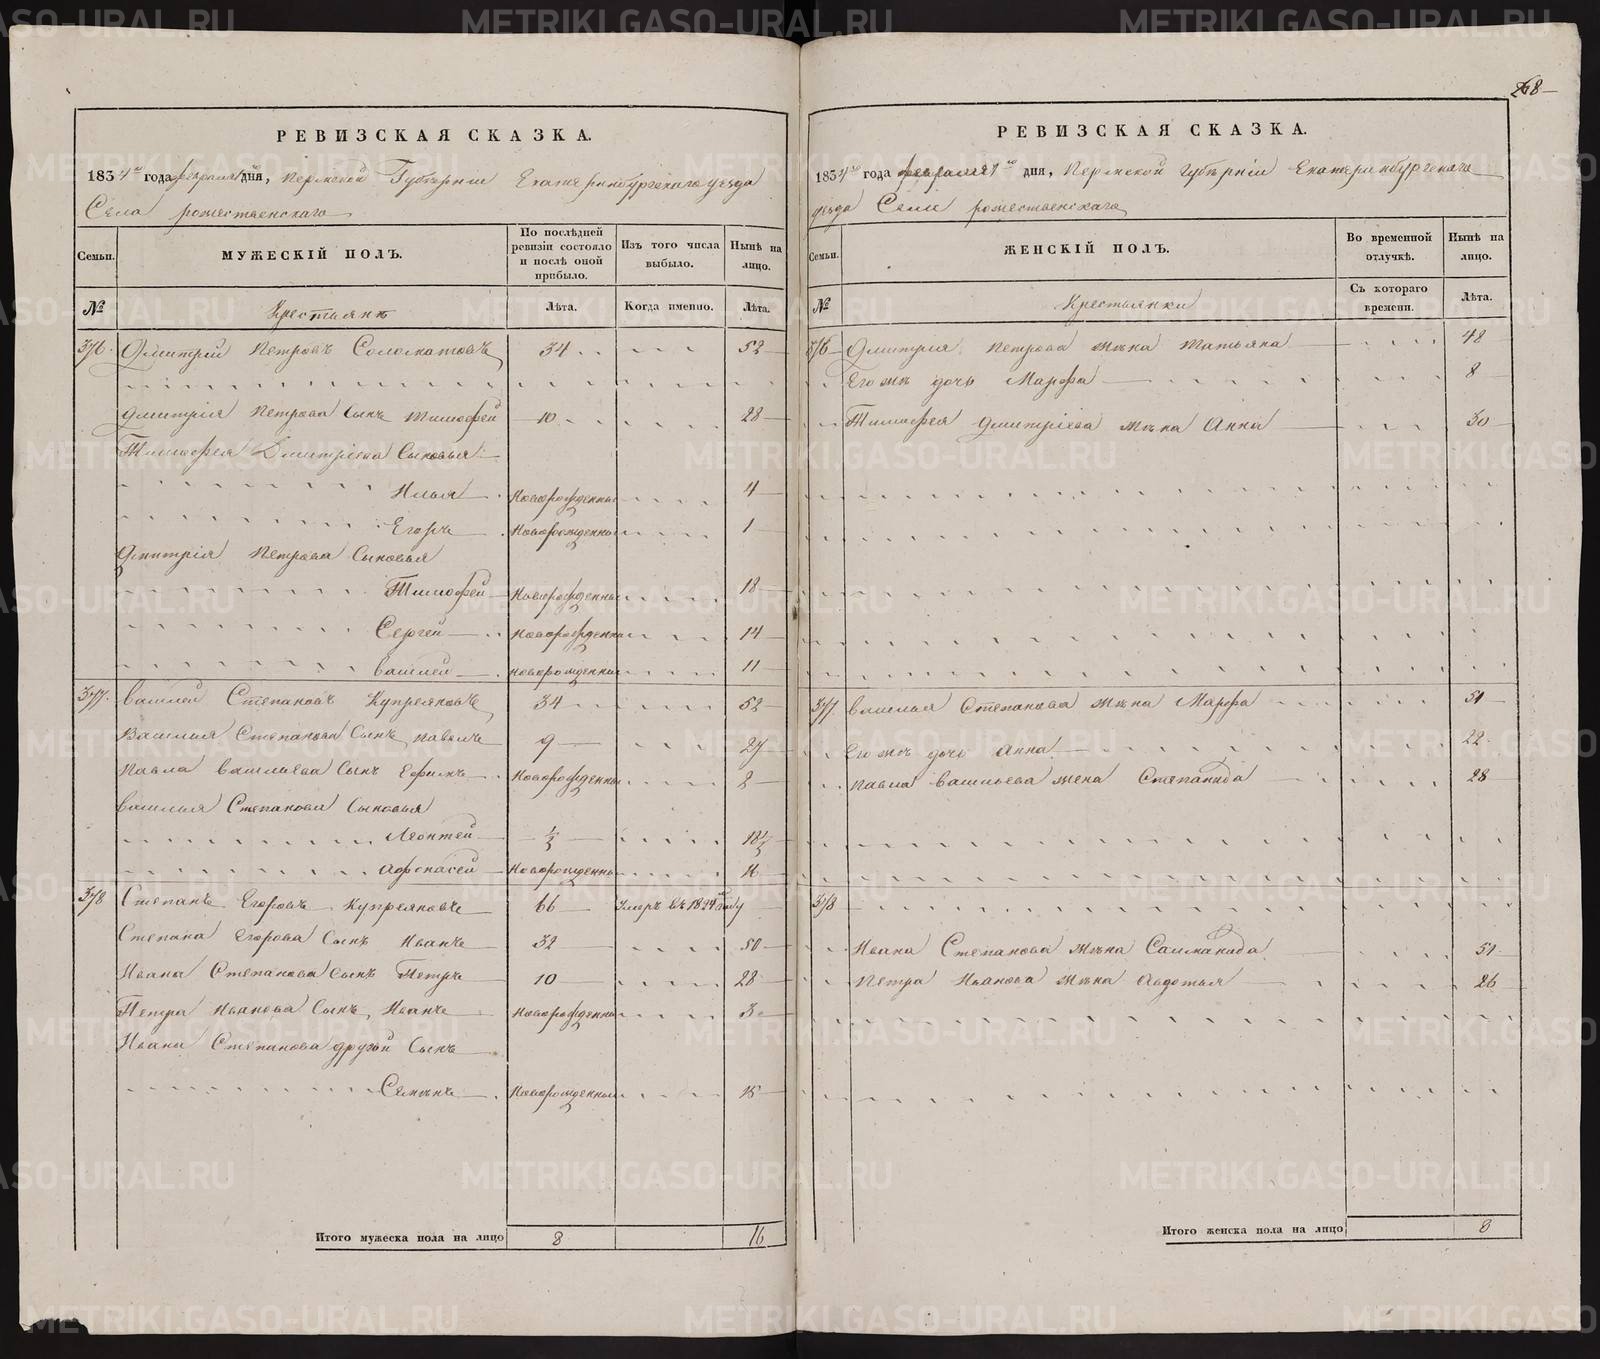 68
РЕВИЗСКАЯ СКАЗКА.
1834го года февраля 1го дня, Пермской Губерніи Екатеринбургскаго уезда
Села рожественскаго
Семьи.
МУЖЕСКІЙ ПОЛЪ.
По послѣдней ревизіи состояло и послѣ оной прибыло.
Изъ того числа выбыло.
Нынѣ на лицо.
№
Крестьянъ
Лѣта.
Когда именно.
Лѣта.
376. Дмитрій Петровъ Соломатовъ 34 52
Дмитрія Петрова Сынъ Тимофей 10 28
Тимофея Дмитріева Сыновья
Илья Новорожденный 4
Егоръ Новорожденный 1
Дмитрія Петрова Сыновья
Тимофей Новорожденный 18
Сергей Новорожденный 14
Василей Новорожденный 11
377. Василей Степановъ Купреяновъ 34 52
Василья Степанова Сынъ Павелъ 9 27
Павла Васильева Сынъ Ефимъ Новорожденный 2
Василья Степанова Сыновья
Леонтей 1/2 18 1/2
Афонасей Новорожденный 16
378 Степанъ Егоровъ Купреяновъ 66 Умръ въ 1824м году
Степана Егорова Сынъ Иванъ 32 50
Ивана Степанова Сынъ Петръ 10 28
Петра Иванова Сынъ Иванъ Новорожденный 3
Ивана Степанова другой Сынъ
Семенъ Новорожденный 15
Итого мужеска пола на лицо 8 16
РЕВИЗСКАЯ СКАЗКА.
1834го года февраля 1го дня, Пермской Губерніи Екатеринбургскаго
уезда Села рожественскаго
Семьи.
ЖЕНСКІЙ ПОЛЪ.
Во временной отлучкѣ.
Нынѣ на лицо.
№
Крестьянки
Съ котораго времени.
Лѣта.
376 Дмитрия Петрова жѣна Татьяна 48
Его жъ дочь Марфа 8
Тимофея Дмитріева жѣна Анна 30
377. Василья Степанова жѣна Марфа 51
Его жъ дочь Анна 22
Павла Васильева жена Степанида 28
378
Ивана Степанова жѣна Саломанида 51
Петра Иванова жѣна Авдотья 26
Итого женска пола на лицо 8
METRIKI.GASO-URAL.RU